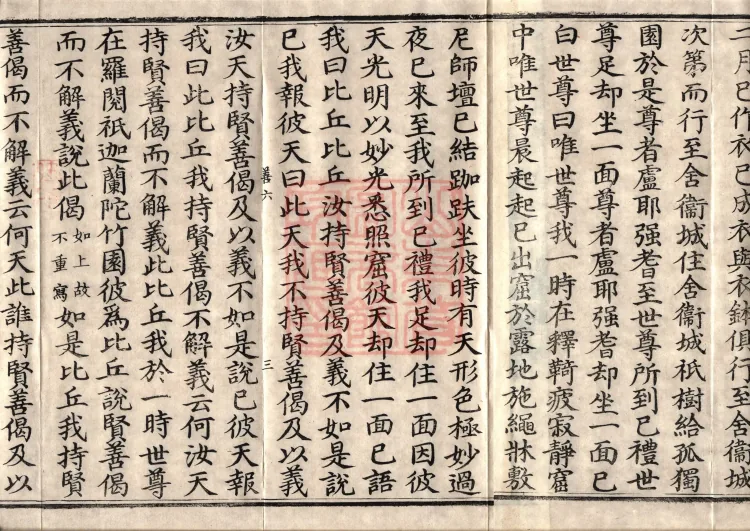 二月已作衣已成衣與衣鉢俱行至舍衞城
次第而行至舍衞城住舍衞城祇樹給孤獨
園於是尊者盧耶强耆至世尊所到已禮世
尊足却坐一面尊者盧耶强耆却坐一面已
白世尊曰唯世尊我一時在釋羇疲寂靜窟
中唯世尊晨起起已出窟於露地施繩牀敷
尼師壇已結跏趺坐彼時有天形色極妙過
夜已來至我所到已禮我足却住一面因彼
天光明以妙光悉照窟彼天却住一面已語
我曰比丘比丘汝持賢善偈及義不如是說
已我報彼天曰此天我不持賢善偈及以義
善六
三
汝天持賢善偈及以義不如是說已彼天報
我曰此比丘我持賢善偈不解義云何汝天
持賢善偈而不解義此比丘我於一時世尊
在羅閱祇迦蘭陀竹園彼爲比丘說賢善偈
而不解義說此偈如上故不重寫如是比丘我持賢
善偈而不解義云何天此誰持賢善偈及以